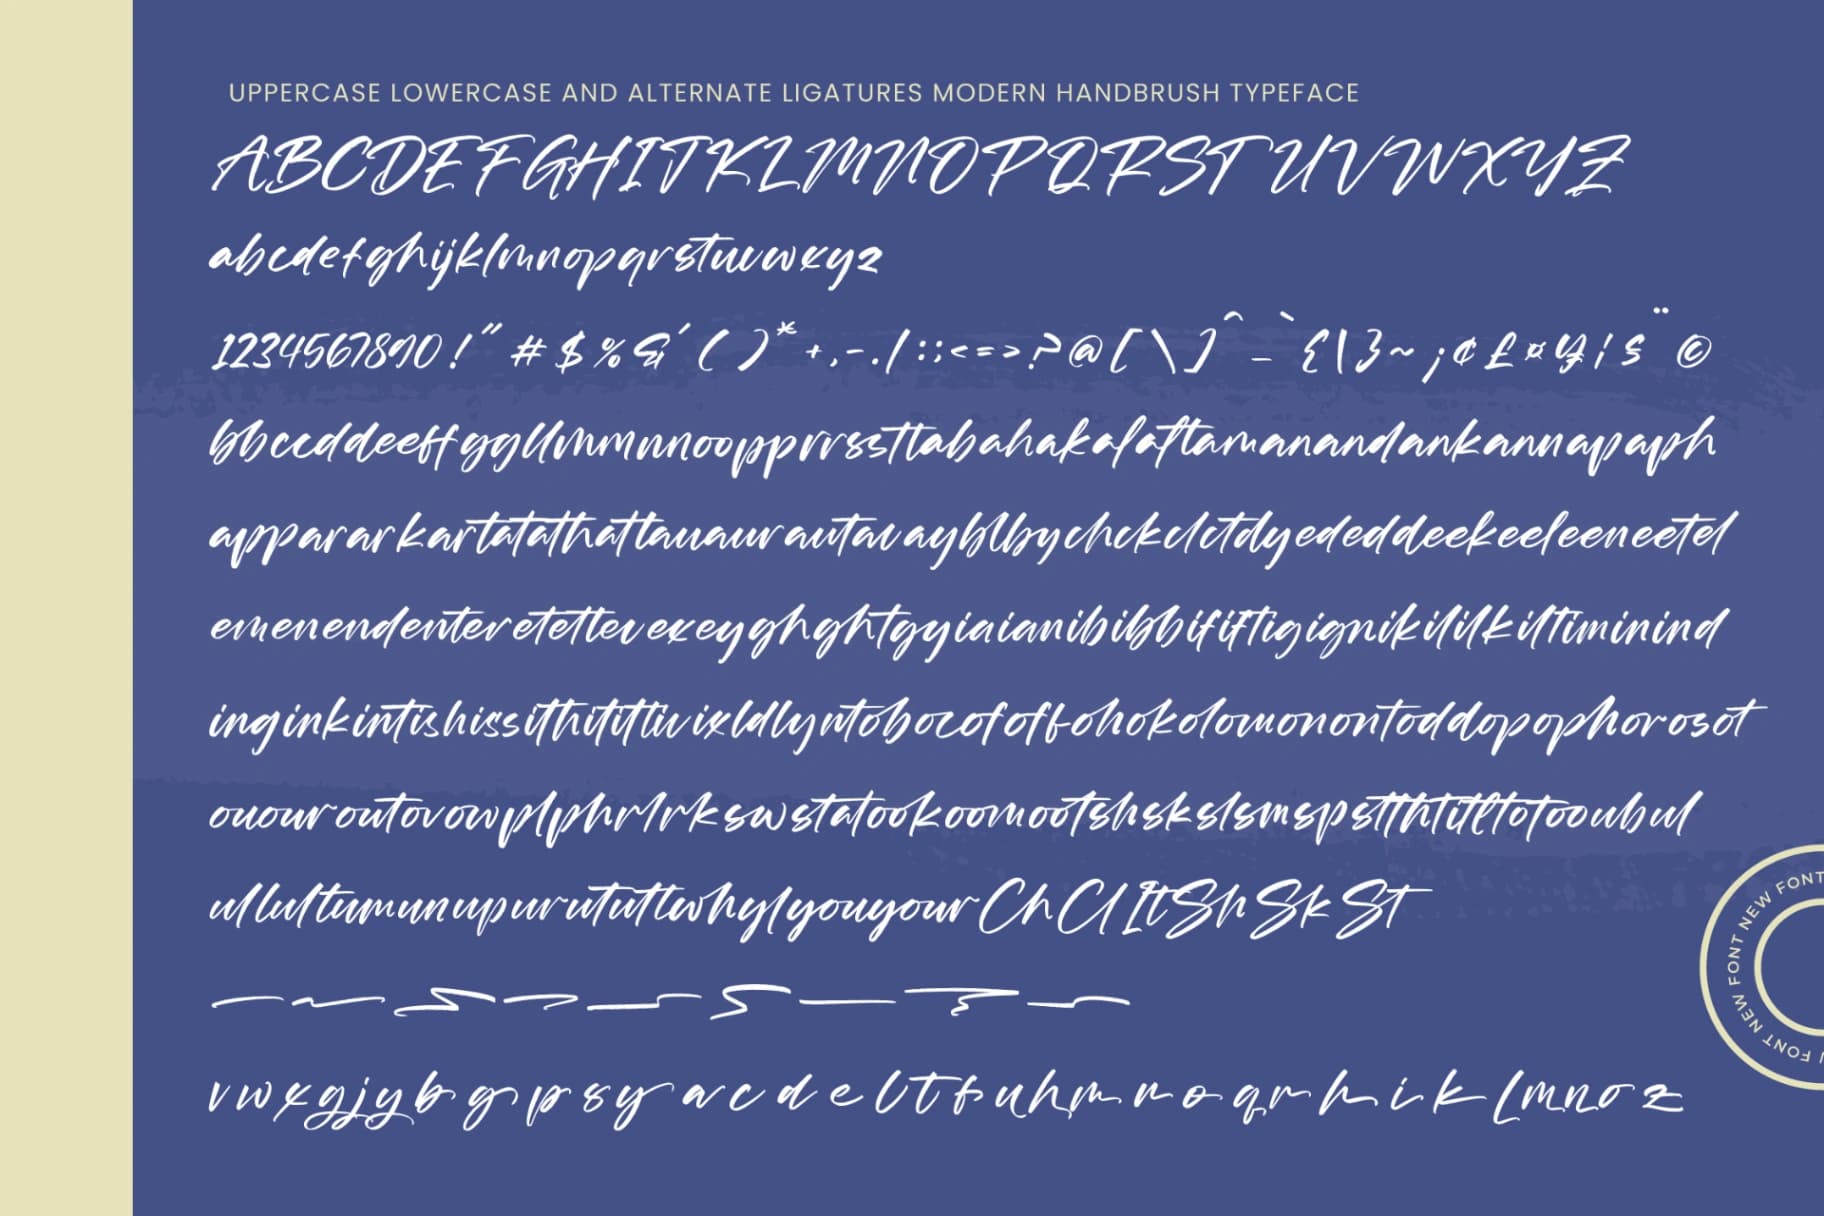 UPPERCASE LOWERCASE AND ALTERNATE LIGATURES MODERN HANDBRUSH TYPEFACE
ABCDEFGHIJKLMNOPQRSTUVWXYZ
abcdefghijklmnopqrstuvwxyz
1234567890!"#$%&'()*+,-./:;<=>?@[\]^_`{|}~¡¢£¤¥¦§¨©
bbccddeeffggllmmnnoopprrssttabahakalaftamanandankannapaph
apparararkartatathattauauraut​avayblbychckclctdyededdeekeeleeneetel
emenendenteretettevexeyghghtgyiaianibibbififtigignikililkiltiminind
inginkintishissithitittivixldlyntobocofoffohokolomonontoddopophorosot
ououroutovowplphrlrkswstatookoomootshskslsmspstthtitltotooubul
ullultumunupurututtwhylyouyourChClItShSkSt
vwxgjybgpsyacdeltfuhmroqrhiklmnoz
NEW FONT NEW FONT NEW FONT